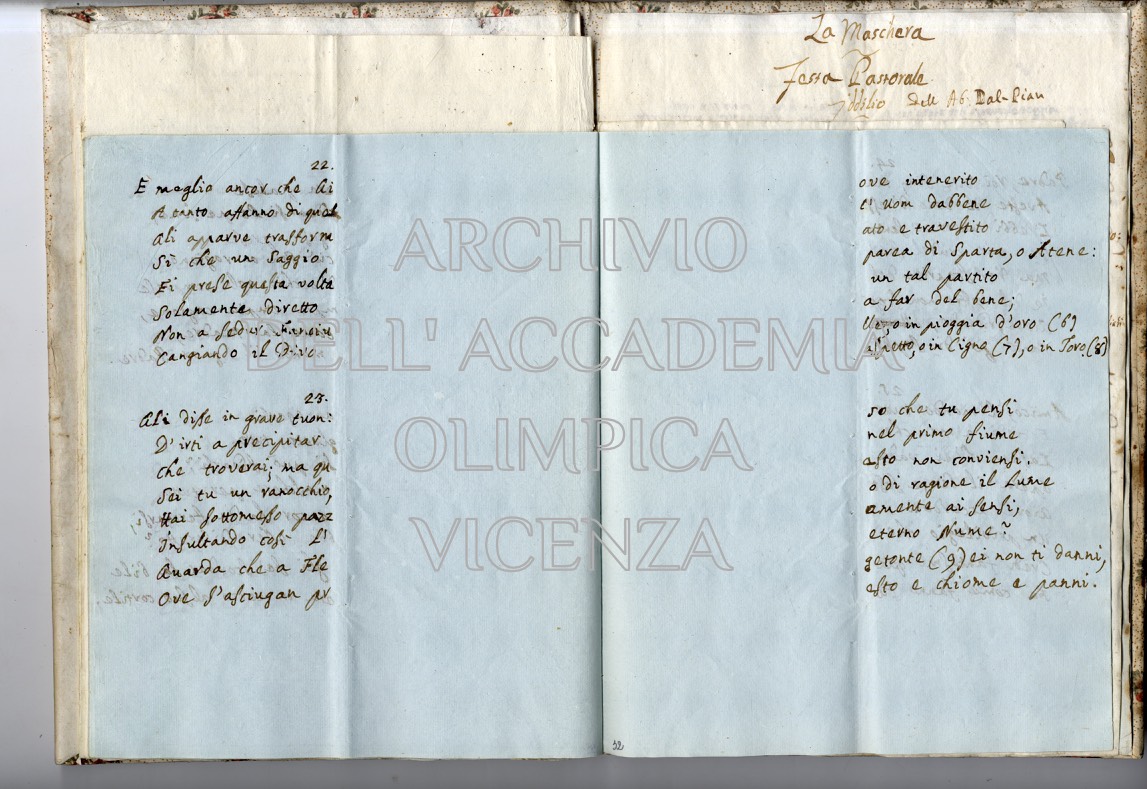 La Maschera
Festa Pastorale
Idilio dell Ab. Dal-Pian
22.
E meglio ancor che Ai
A tanto affanno di quel
Gli apparve trasform
Sì che un Saggio
Ei prese questa volta
Solamente diretto
Non a sedur
Cangiando il Divo
23.
Gli disse in grave tuon:
D' irti a precipitar
che troverai; ma qu
Sei tu un ranocchio,
Hai sottomesso pazz
Insultando così L'
Guarda che a Fle
Ove s'asciugan pr
ove intenerito
t' uom dabbene
ato e travestito
parea di Sparta, o Atene:
un tal partito
a far del bene;
lle, o in pioggia d'oro (6)
aspetto, o in Cigno (7), o in Toro (8)
so che tu pensi
nel primo fiume
esto non conviensi.
o di ragione il Lume
amente ai sensi,
eterno Nume?
getonte (9) ei non ti danni,
esto e chiome e panni.
32
ARCHIVIO
DELL'ACCADEMIA
OLIMPICA
VICENZA